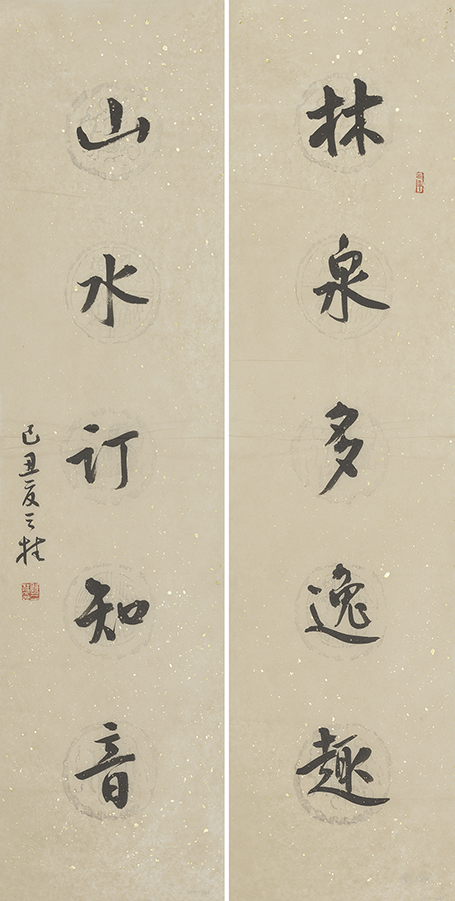 林泉多逸趣
山水订知音
己丑夏之